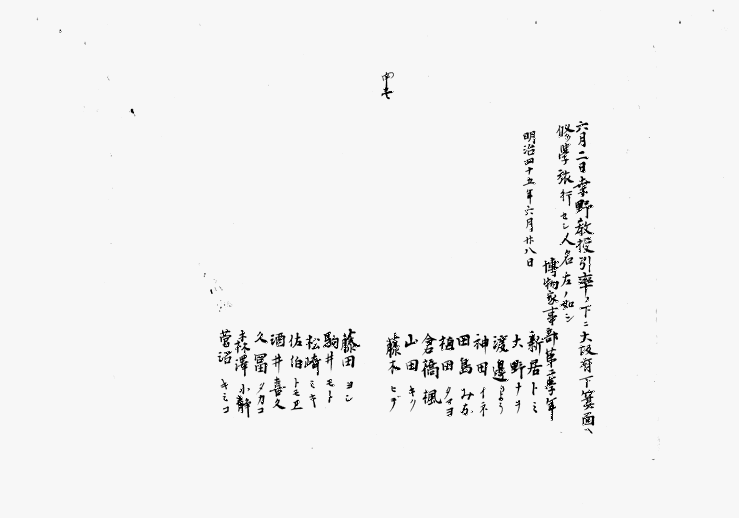 六月二日桒野教授引率ノ下ニ大阪府下箕面ヘ
修學旅行セシ人名左ノ如シ
博物家事部第二學年
明治四十五年六月廿八日
新居トミ
大野ナヲ
渡邉
神田イネ
田島みね
植田タマヨ
倉橋楓
山田キク
藤本ヒデ
藤田ヨシ
駒井モト
松崎ミキ
佐伯トモヱ
酒井喜久
久冨タカコ
森澤小静
菅沼キミコ